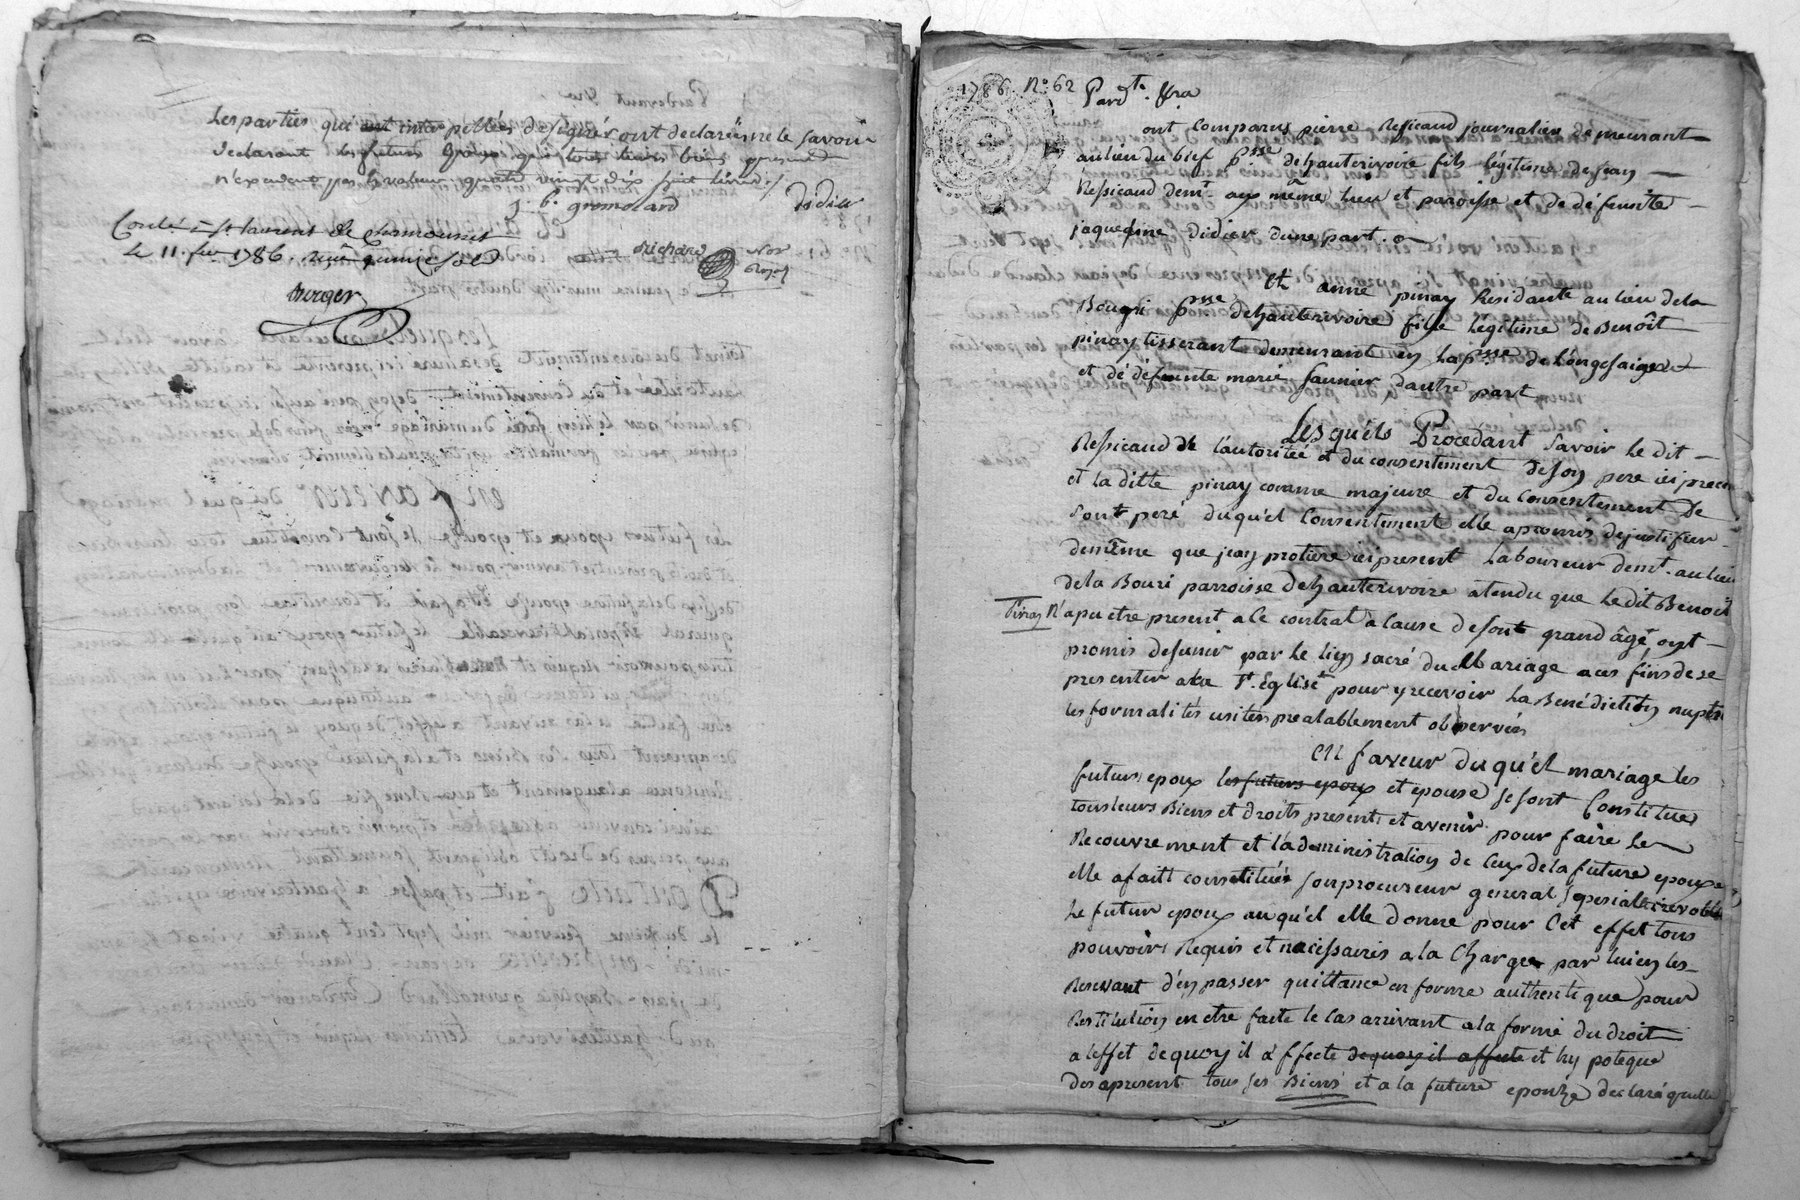 Les parties qui ont interpellées de signer ont declaré ne le savoir
declarant les futurs Epoux que tous leurs biens presents
n'excedent pas la valeur quatre vingt dix huit livres ./.
j. b. gromolard
didier
Richard
Nor
Royal
Conlé a st laurent de Chamousset
Le 11. fer 1786. reçu quinze sols
Burger
1786 No. 62
Pard.t Nra
ont Comparus pierre Ressicaud journalier demeurant
au lieu du bief p.sse de hauterivoire fils légitime de jean
Ressicaud demt. aux même lieu et paroisse et de défeunte
jaquesme didier d'une part.
Et anne pinay Residante au lieu de la
Bouqri psse. de hauterivoire fille légitime de Benoît
pinay tisserant demeurant en la psse de Longesaigne
et dé défeunte marie saunier d'autre part
Lesquéls Procedant savoir le dit
Ressicaud de l'autoritée et du consentement de son pere ici present
et la ditte pinay comme majeure et du consentement De
sont peré duqu'el Consentement elle apromis de justifier
demême que jean protiere ici present Laboureur demt. au lieu
de la Bouri parroisse de hauterivoire atendu que ledit Benoit
Pinay N'apu etre present a le contrat a Cause de sont grand âgé, ont
promis desunir par le lien sacré du Mariage a ces fins de se
presenter a la St. Eglise pour y recevoir La Benédiction nuptie
les formalités usitées prealablement observées
En faveur duqu'el mariage les
futurs epoux les futurs epoux et epouse se sont Constitues
tous leurs Biens et droits present et avenir pour faire le
Recouvrement et l'administration de ceux de la future epouse
elle a faitt constituée son procureur general special irrevoble
Le futur epoux auqu'el elle donne pour Cet effet tous
pouvoirs Requis et nécessaires a la Charge par lui en les
Recevant d'en passer quittance en forme authentique pour
Restitution en etre faite le cas arrivant a la forme du droit
a leffet de quoy il affecte de quoy il affecte et hypoteque
des apresent tous ses Biens et a la future epouze declaré quelle